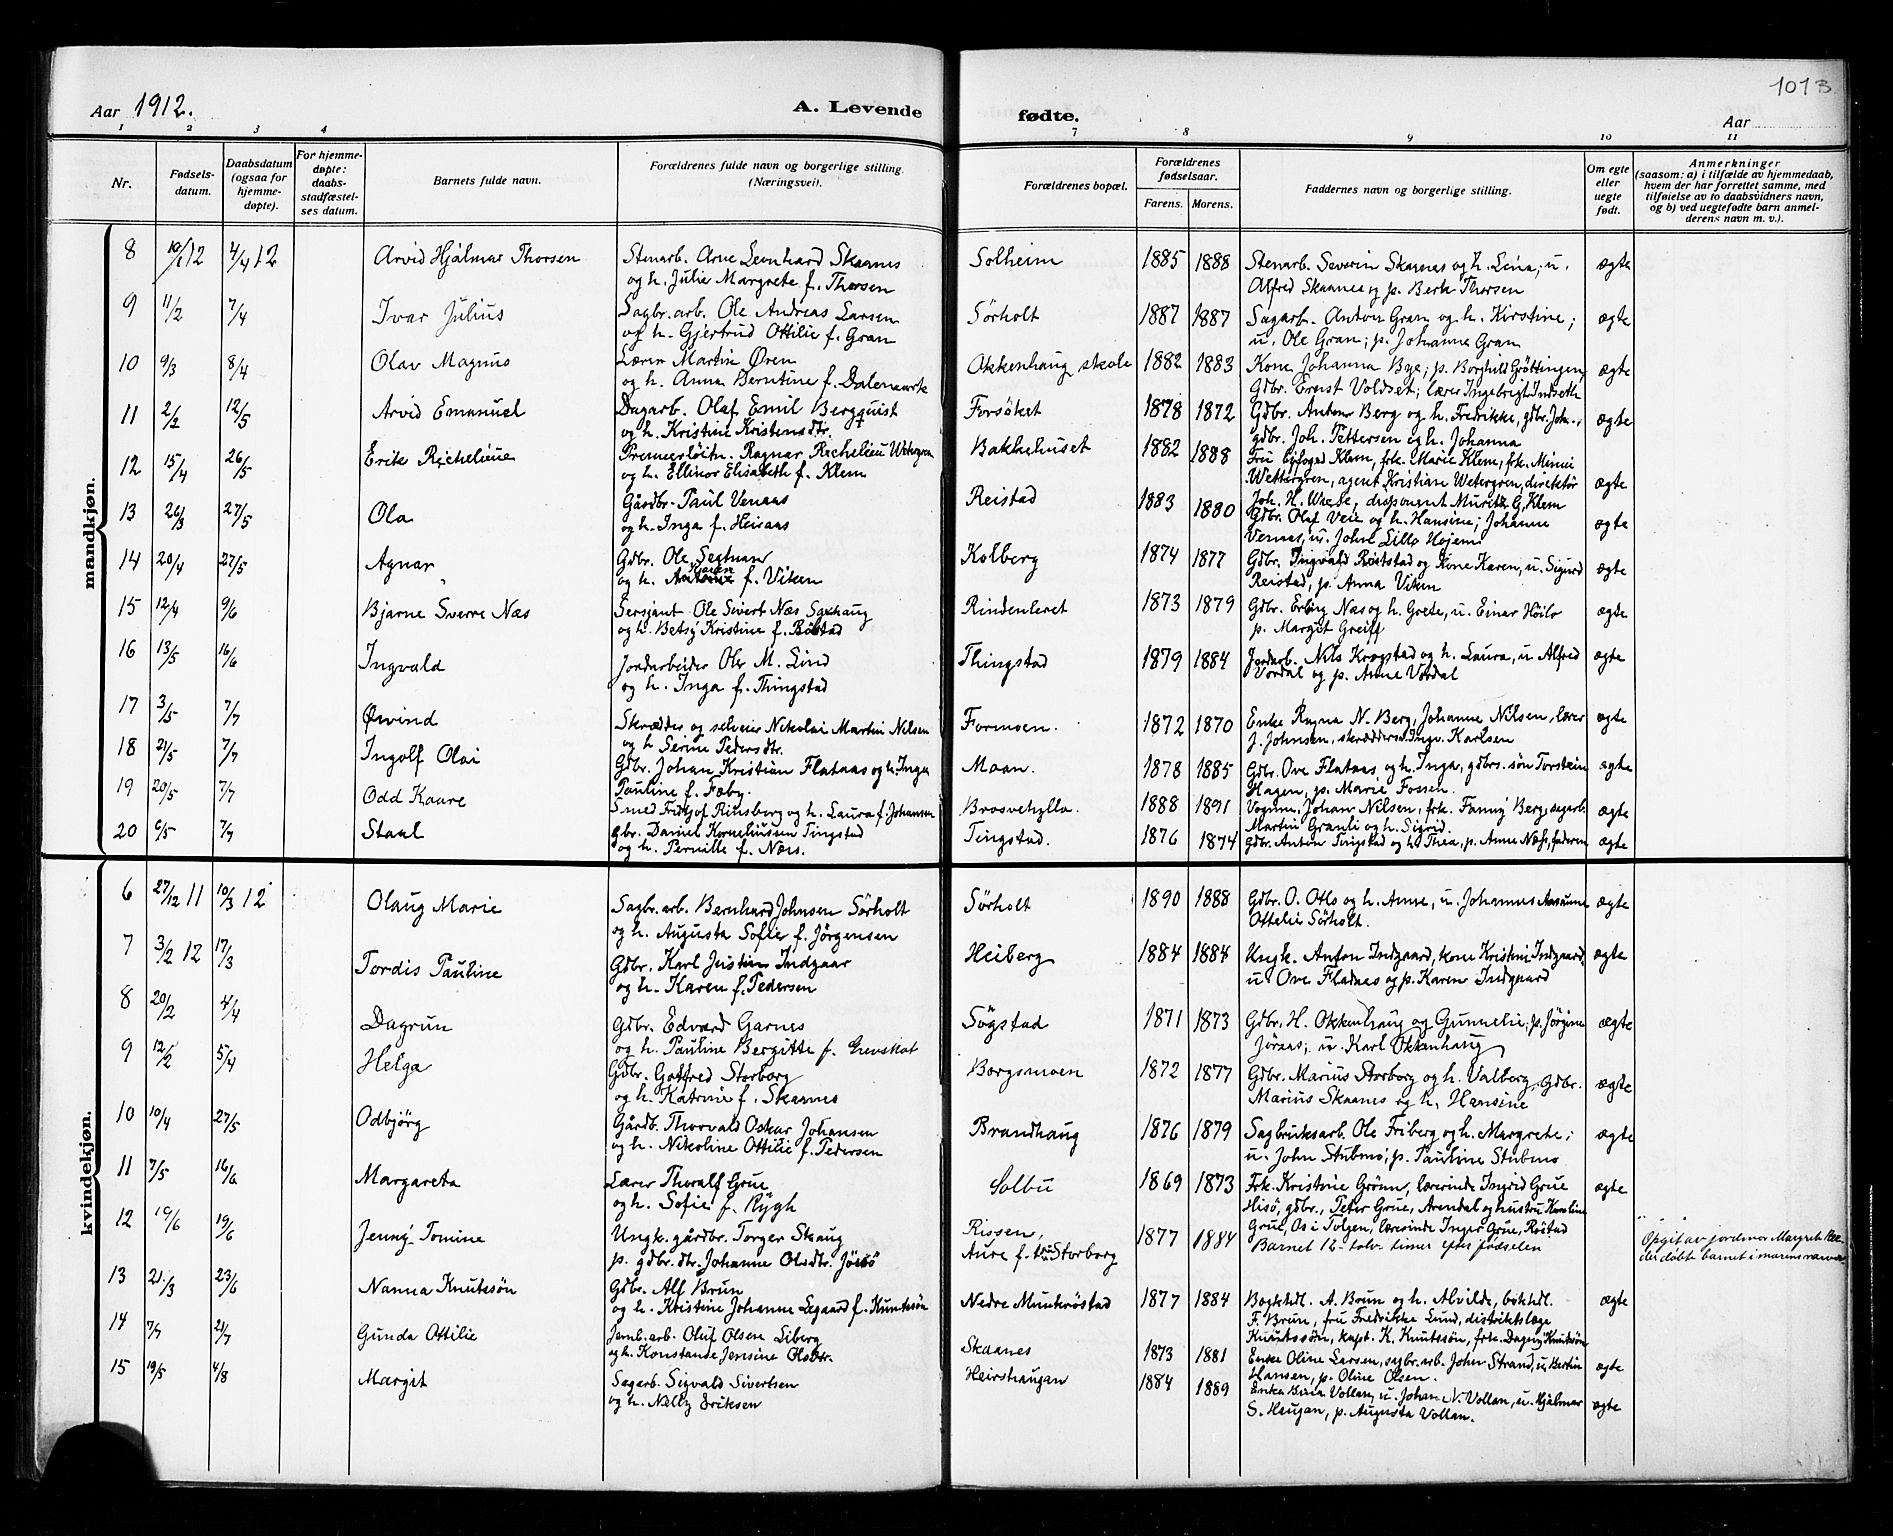 101 B
Aar 1912.
A. Levende
fødte.
Aar
1 2 3 4 7 8 9 10 11
Nr.
Fødsels-
datum.
Daabsdatum
(ogsaa for
hjemme-
døpte).
For hjemme-
døpte:
daabs-
stadfæstel-
ses datum.
Barnets fulde navn.
Forældrenes fulde navn og borgerlige stilling.
(Næringsvei).
Forældrenes bopæl.
Forældrenes
fødselsaar.
Farens. Morens.
Faddernes navn og borgerlige stilling.
Om egte
eller
uegte
født.
Anmerkninger
(saasom: a) i tilfælde av hjemmedaab,
hvem der har forrettet samme, med
tilføielse av to daabsvidners navn,
og b) ved uegtefødte barn anmel-
derens navn m. v.).
mandkjøn.
8 10/1 12 4/4 12 Arvid Hjalmar Thorsen Stenarb. Arne Leonhard Skaanes Solheim 1885 1888 Stenarb. Severin Skaanes og h. Lina; u. ægte
og h. Julie Margrete f. Thorsen Alfred Skaanes og p. Berta Thorsen
9 11/2 7/4 Ivar Julius Sagbr. arb. Ole Andreas Larsen Sörholt 1887 1887 Sagarb. Anton Gran og h. Kirstine; ægte
og h. Gjertrud Ottilie f. Gran u. Ole Gran; p. Johanna Gran
10 9/3 8/4 Olav Magnus Lærer Martin Øren Okkenhaug skole 1882 1883 Kone Johanna Bye; p. Borghild Gröttingen, ægte
og h. Anna Berntine f. Dalemark Gdbr. Ernst Voldset; lærer Ingebrigt Indseth
11 2/2 12/5 Arvid Emanuel Dagarb. Olaf Emil Bergquist Forsöket 1878 1872 Gdbr. Anton Berg og h. Fredrikke, gdbr. Joh. ægte
og h. Kristine Kristensdtr. gdbr. Joh. Pettersen og h. Johanna
12 15/4 26/5 Erik Richelieue Premierlöitn. Ragnar Richelieu Wetergren Bakkehuset 1882 1888 Fru byfoged Klem, frk. Marie Klem, frk. Mimi
og h. Ellinor Elisabeth f. Klem Wettergren, agent Kristian Wetergren, direktör ægte
Joh. H. disponent G. Klem
13 26/3 27/5 Ola Gårdbr. Paul Venaas Reistad 1883 1880 Gdbr. Olaf Veie og h. Hansine; Johanne ægte
og h. Inga f. Heisaas u. John Lillo Hojem
14 20/4 27/5 Agnar Gdbr. Ole Segtnan Kolberg 1874 1877 Gdbr. Ingvald Rostad og kone Karen, u. Sigurd ægte
og h. f. Viken Reistad, p. Anna Viken
15 12/4 9/6 Bjarne Sverre Næs Sersjant Ole Sivert Næs Saxhaug Rindenleret 1873 1879 Gdbr. Erling Næs og h. Grete, u. Einar Höilo ægte
og h. Betsy Kristine f. Bölstad p. Margit Greiff
16 13/5 16/6 Ingvald Jordarbeider Oler M. Lind Thingstad 1879 1884 Jordarb. Nils Krogstad og h. Laura, u. Alfred ægte
og h. Inga f. Thingstad Vordal og p. Anne Vordal
17 3/5 7/7 Øivind Skrædder og selveier Nikolai Martin Nilsen Formoen. 1872 1870 Enke Ragna N. Berg, Johanne Nilsen, lærer ægte
og h. Serine Pedersdtr. J. Johnsen, skræddersv. Ingv. Karlsen
18 21/5 7/7 Ingolf Olai Gdbr. Johan Kristian Flataas og h. Inga Moan. 1878 1885 Gdbr. Ove Flataas og h. Inga, gdbrs. sön Torstein ægte
Pauline f. Faby. Hagen, p. Marie Fossen.
19 20/5 7/7 Odd Kaare Smed Fridtjof Rinsberg og h. Laura f. Johansen Brosvehylla. 1888 1891 Vognm. Johan Nilsen, frk. Fanny Berg, sagarb. ægte
Martin Granli og h. Sigrid.
20 6/5 7/7 Staal gbr. Daniel Korneliussen Tingstad Tingstad. 1876 1874 Gdbr. Anton Tingstad og h. Thea, p. Anne Næss, faderen ægte
og h. Pernille f. Næss.
kvindekjøn.
6 27/12 11 10/3 12 Olaug Marie Sagbr. arb. Bernhard Johnsen Sörholt Sörholt 1890 1888 Gdbr. O. Otlo og h. Anne, u. Johannes Aasaune ægte
og h. Augusta Sofie f. Jörgensen Ottelie Sörholt.
7 3/2 12 17/3 Tordis Pauline Gdbr. Karl Jestin Indgaar Heiberg 1884 1884 Ungk. Anton Indgaard, kone Kristine Indgaard, ægte
og h. Karen f. Pedersen u. Ove Fladnes og p. Karen Indgaard
8 20/2 4/4 Dagrun Gdbr. Edvard Garnes Sögstad 1871 1873 Gdbr. H. Okkenhaug og Gunnelie; p. Jörgine ægte
og h. Pauline Bergitte f. Grevskot Jöraas; u. Karl Okkenhaug
9 12/2 5/4 Helga Gdbr. Gotfred Storborg Borgsmoen 1872 1877 Gdbr. Marius Storborg og h. Valberg, Gdbr. ægte
og h. Katrine f. Skaanes Marius Skaanes og h. Hansine
10 10/4 27/5 Odbjörg Gårdb. Thorvald Oskar Johansen Brandhaug 1876 1879 Sagbruksarb. Ole Friberg og h. Margrete; ægte
og h. Nikoline Ottilie f. Pedersen u. John Stubmo; p. Pauline Stubmo
11 7/5 16/6 Margareta Lærer Thoralf Grue Solbu 1869 1873 Frk. Kristine Grönn, lærerinde Ingrid Grue ægte
og h. Sofie f. Rygh Hisö, gdbr. Peter Grue, Arendal og hustru Karoline
Grue, Os i Tolgen, lærerinde Inger Grue, Röstad
12 19/6 19/6 Jenny Tomine Ungk. gårdbr. Torger Skaug Rissen, 1877 1884 Barnet 12 - tolv - timer efter födselen Opgit av jordmor Margrete
p. gdbr. dtr. Johanne Olsdtr. Jössö Aure f. t. Storborg der döbte barnet i
13 21/3 23/6 Nanna Knutssön Gdbr. Alf Brun Nedre Munkröstad 1877 1884 Bogtrhdl. A. Brun og h. Alvilde, bokhdl. ægte
og h. Kristine Johanne Legaard f. Knutssön F. Brun, fru Fredrikke Lund, distriktslæge
Knutssön, kapt. K. Knutssön, frk. Dagny Knutssön
14 7/7 21/7 Gunda Ottilie Jernb. arb. Oluf Olsen Liberg Skaanes 1873 1881 Enke Oline Larsen, sagbr. arb. John Strand, u. Martin ægte
og h. Konstanse Jensine Olsdtr. Hansen, p. Oline Olsen.
15 19/5 4/8 Margit Sagarb. Sigvald Sivertsen Heirshaugan 1884 1889 Enke Vollan, u. Johan N. Vollan, u. Hjalmar ægte
og h. Nelly Eriksen S. Haugan, p. Augusta Vollan.